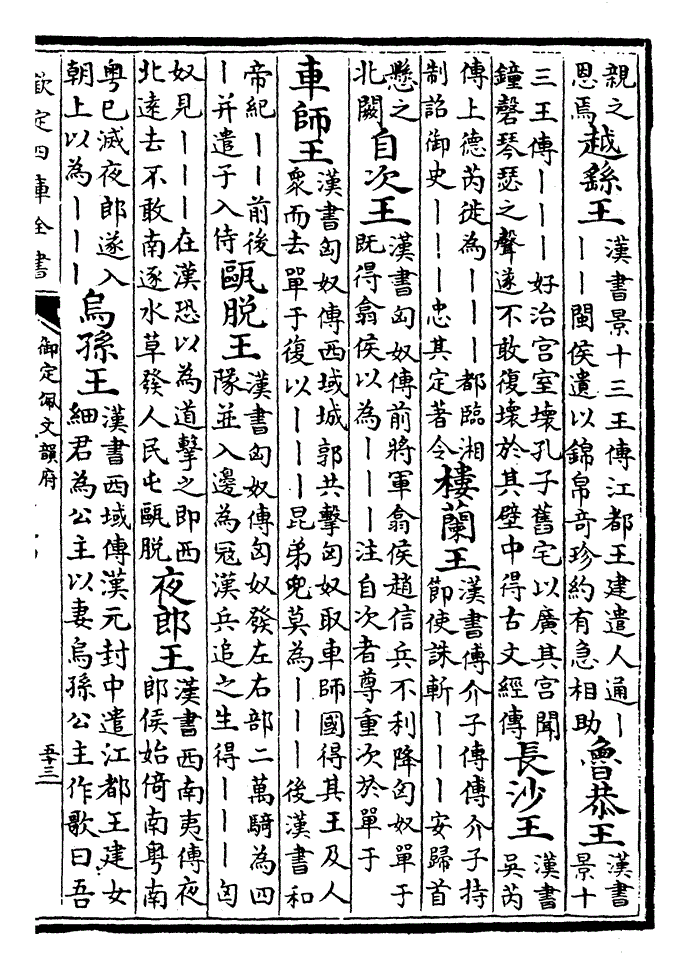 親之
恩焉
越繇王
漢書景十三王傳江都王建遣人通〡
〡〡閩侯遺以錦帛奇珍約有急相助
魯恭王
漢書
景十
三王傳〡〡〡好治宫室壞孔子舊宅以廣其宫聞
鐘磬琴瑟之聲遂不敢復壞於其壁中得古文經傳
長沙王
漢書
吳芮
傳上德芮徙為〡〡〡都臨湘
制詔御史〡〡〡忠其定著令
樓蘭王
漢書傅介子傳傅介子持
節使誅斬〡〡〡安歸首
懸之
北闕
自次王
漢書匈奴傳前將軍翕侯趙信兵不利降匈奴單于
既得翕侯以為〡〡〡注自次者尊重次於單于
車師王
漢書匈奴傳西域城郭共擊匈奴取車師國得其王及人
衆而去單于復以〡〡〡昆弟兜莫為〡〡〡後漢書和
帝紀〡〡前後
〡并遣子入侍
甌脫王
漢書匈奴傳匈奴發左右部二萬騎為四
隊並入邊為冦漢兵追之生得〡〡〡匈
奴見〡〡〡在漢恐以為道擊之即西
北遠去不敢南逐水草發人民屯甌脫
夜郎王
漢書西南夷傳夜
郎侯始倚南粤南
粤已滅夜郎遂入
朝上以為〡〡〡
烏孫王
漢書西域傳漢元封中遣江都王建女
細君為公主以妻烏孫公主作歌曰吾
欽定四庫全書
御定佩文韻府
五十三